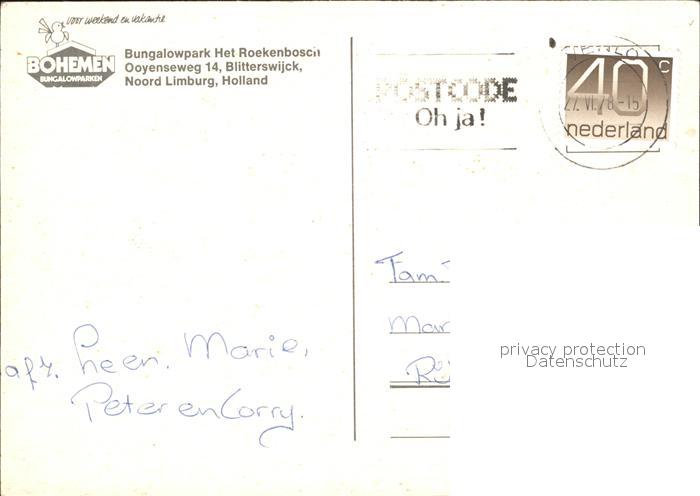 voor weekend en vakantie
BOHEMEN
BUNGALOWPARKEN
Bungalowpark Het Roekenbosch
Ooyenseweg 14, Blitterswijck,
Noord Limburg, Holland
POSTCODE
Oh ja!
40 c
nederland
27. VI. 78-15
Fam.
Mar
Rij
privacy protection
Datenschutz
afz. Leen. Marie,
Peter en Corry.